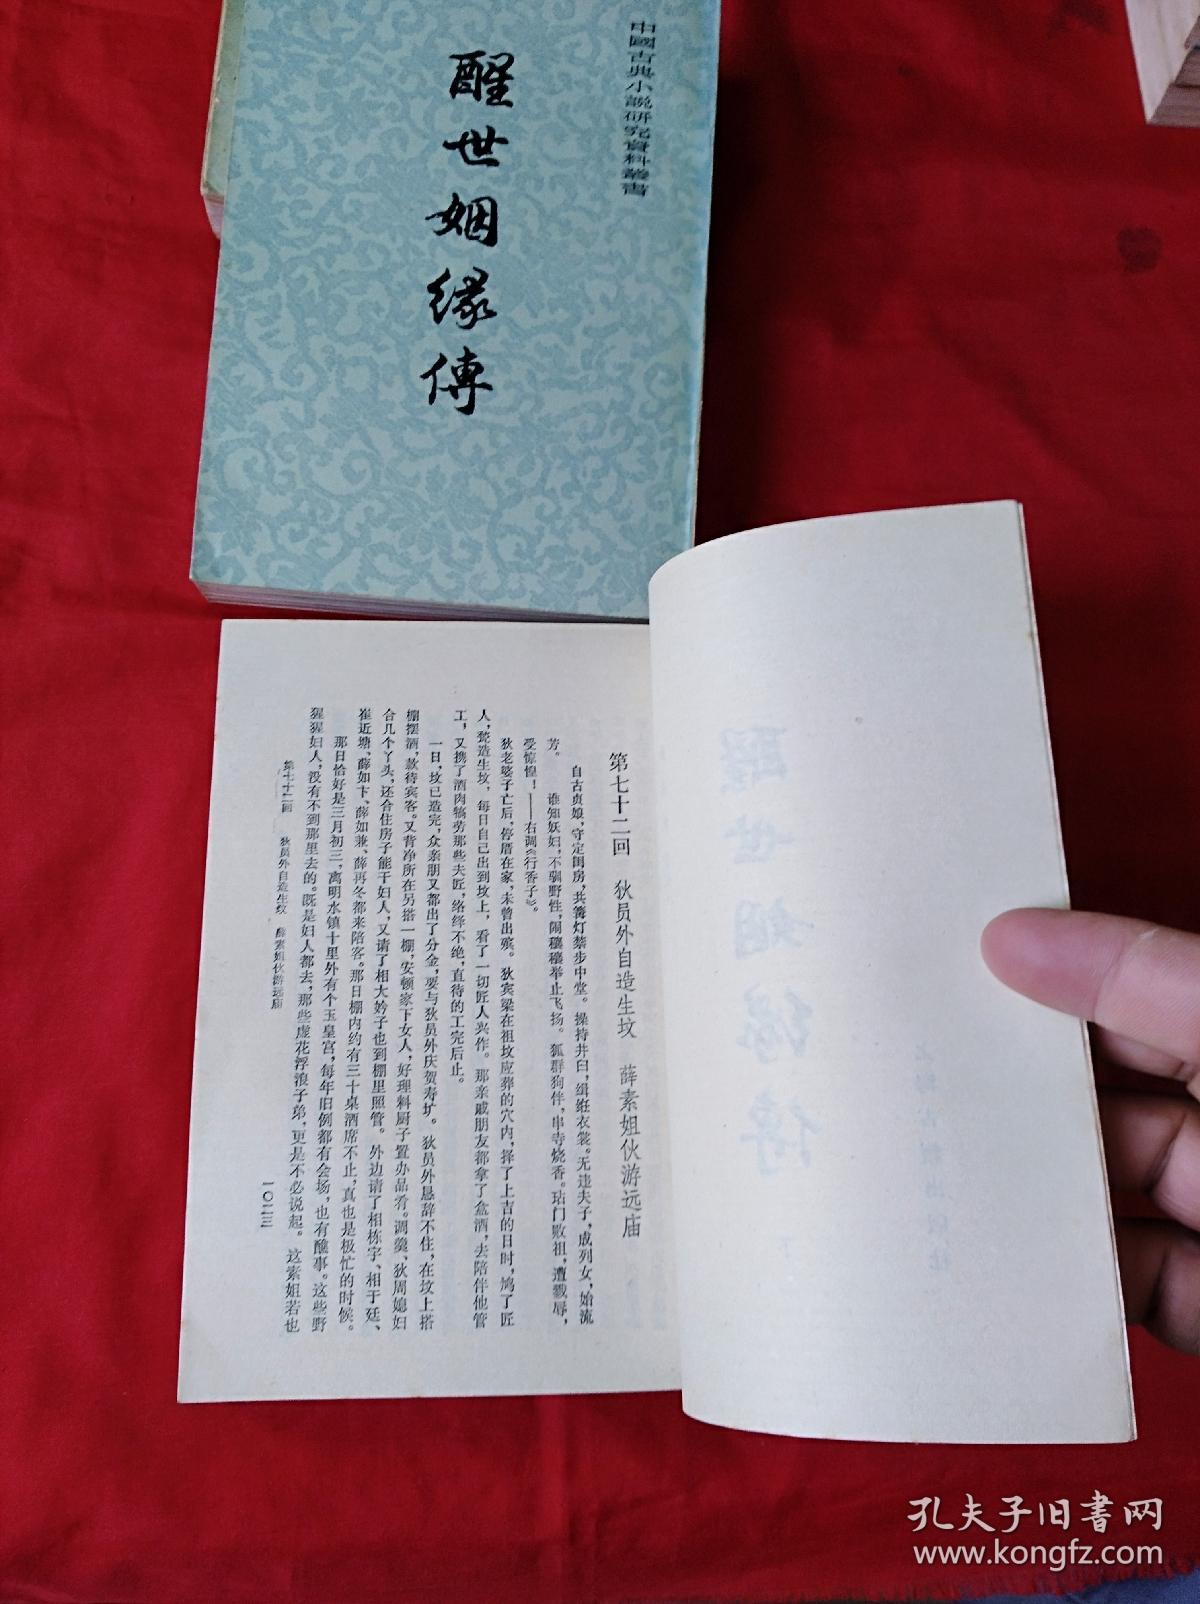 中國古典小說研究資料叢書
醒世姻緣傳
第七十二回　狄员外自造生坟　薛素姐伙游远庙
自古贞娘，守定闺房，共篝灯禁步中堂。操持井臼，缉纴衣裳。无违夫子，成列女，始流
芳。
谁知妖妇，不驯野性，闹穰穰举止飞扬。狐群狗伴，串寺烧香。玷门败祖，遭戮辱，
受惊惶！——右调《行香子》。
狄老婆子亡后，停厝在家，未曾出殡。狄宾梁在祖坟应葬的穴内，择了上吉的日时，鸠了匠
人，甃造生坟，每日自己出到坟上，看了一切匠人兴作。那亲戚朋友都拿了盒酒，去陪伴他管
工，又携了酒肉犒劳那些夫匠，络绎不绝，直待的工完后止。
一日，坟已造完，众亲朋又都出了分金，要与狄员外庆贺寿圹。狄员外恳辞不住，在坟上搭
棚摆酒，款待宾客。又背净所在另搭一棚，安顿家下女人，好理料厨子置办品肴。调羹、狄周媳妇
合几个丫头，还合住房子能干妇人，又请了相大妗子也到棚里照管。外边请了相栋宇、相于廷、
崔近塘、薛如卞、薛如兼、薛再冬都来陪客。那日棚内约有三十桌酒席不止，真也是极忙的时候。
那日恰好是三月初三，离明水镇十里外有个玉皇宫，每年旧例都有会场，也有醮事。这些野
猩猩妇人，没有不到那里去的。既是妇人都去，那些虚花浮浪子弟，更是不必说起。这素姐若也
第七十二回　狄员外自造生坟　薛素姐伙游远庙
一〇二三
醒世姻緣傳
下
上海古籍出版社
孔夫子旧书网
www.kongfz.com